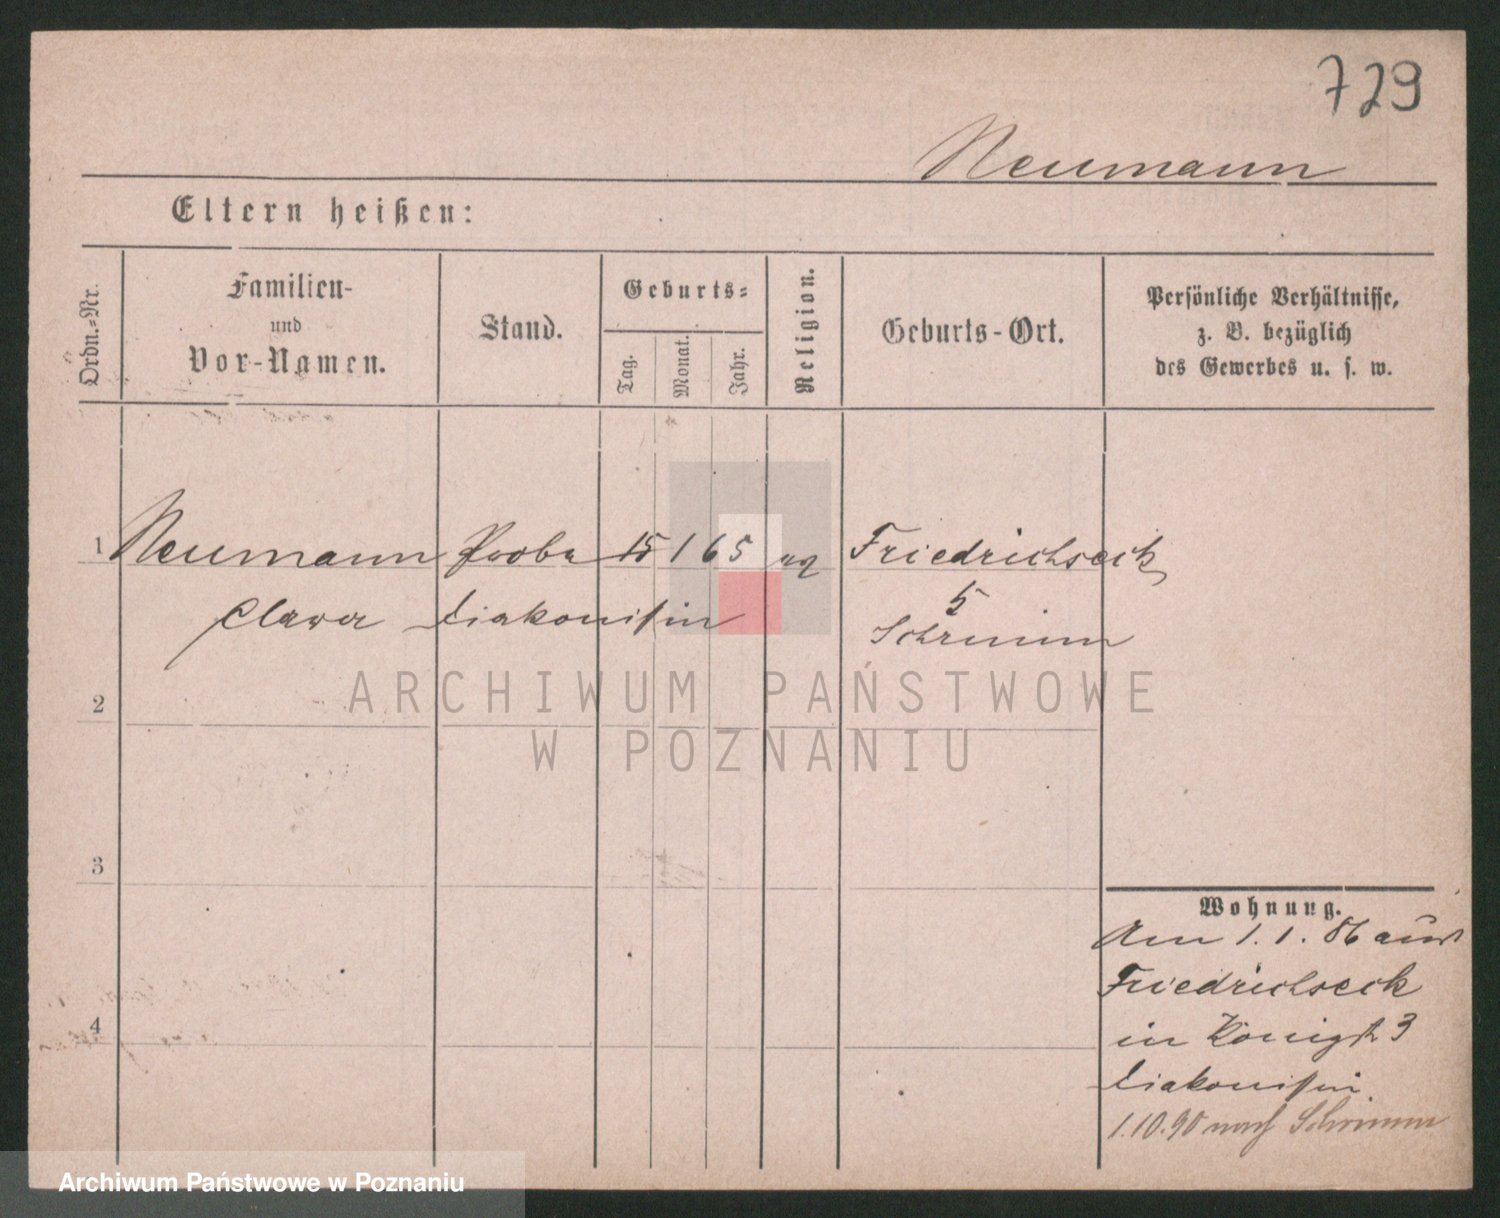 729
Neumann
Eltern heißen:
Ordn.-Nr.
Familien-
und
Vor-Namen.
Stand.
Geburts-
Tag.
Monat.
Jahr.
Religion.
Geburts-Ort.
Persönliche Verhältnisse,
z. B. bezüglich
des Gewerbes u. s. w.
1 Neumann Probe 15 1 65 Friedrichseck
Diakonissin
Schrimm
2
3
4
Wohnung.
Am 1. 1. 86 aus
Friedrichseck
in Königstr 3
Diakonissin
1.10.90 nach Schrimm
ARCHIWUM PAŃSTWOWE
W POZNANIU
Archiwum Państwowe w Poznaniu